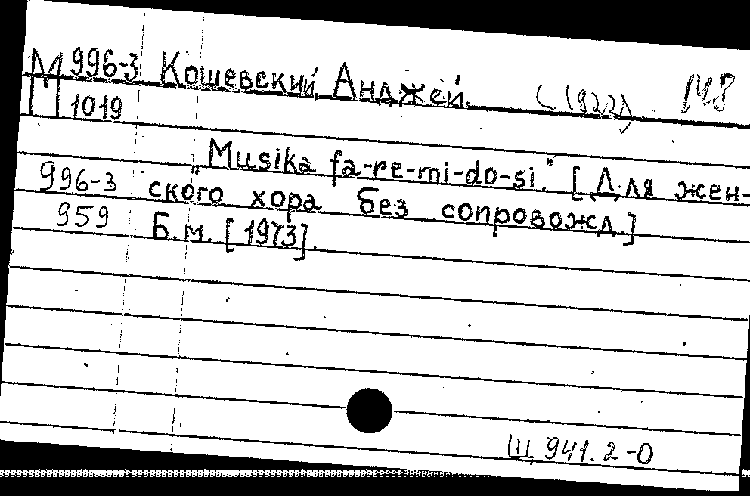 М 996-3 Кошевский, Анджей. (1922) М8
1019
"Musika fa-re-mi-do-si." [Для жен-
996-3 ского хора без сопровожд.]
959 Б.м. [1973].
Щ 941.2-0